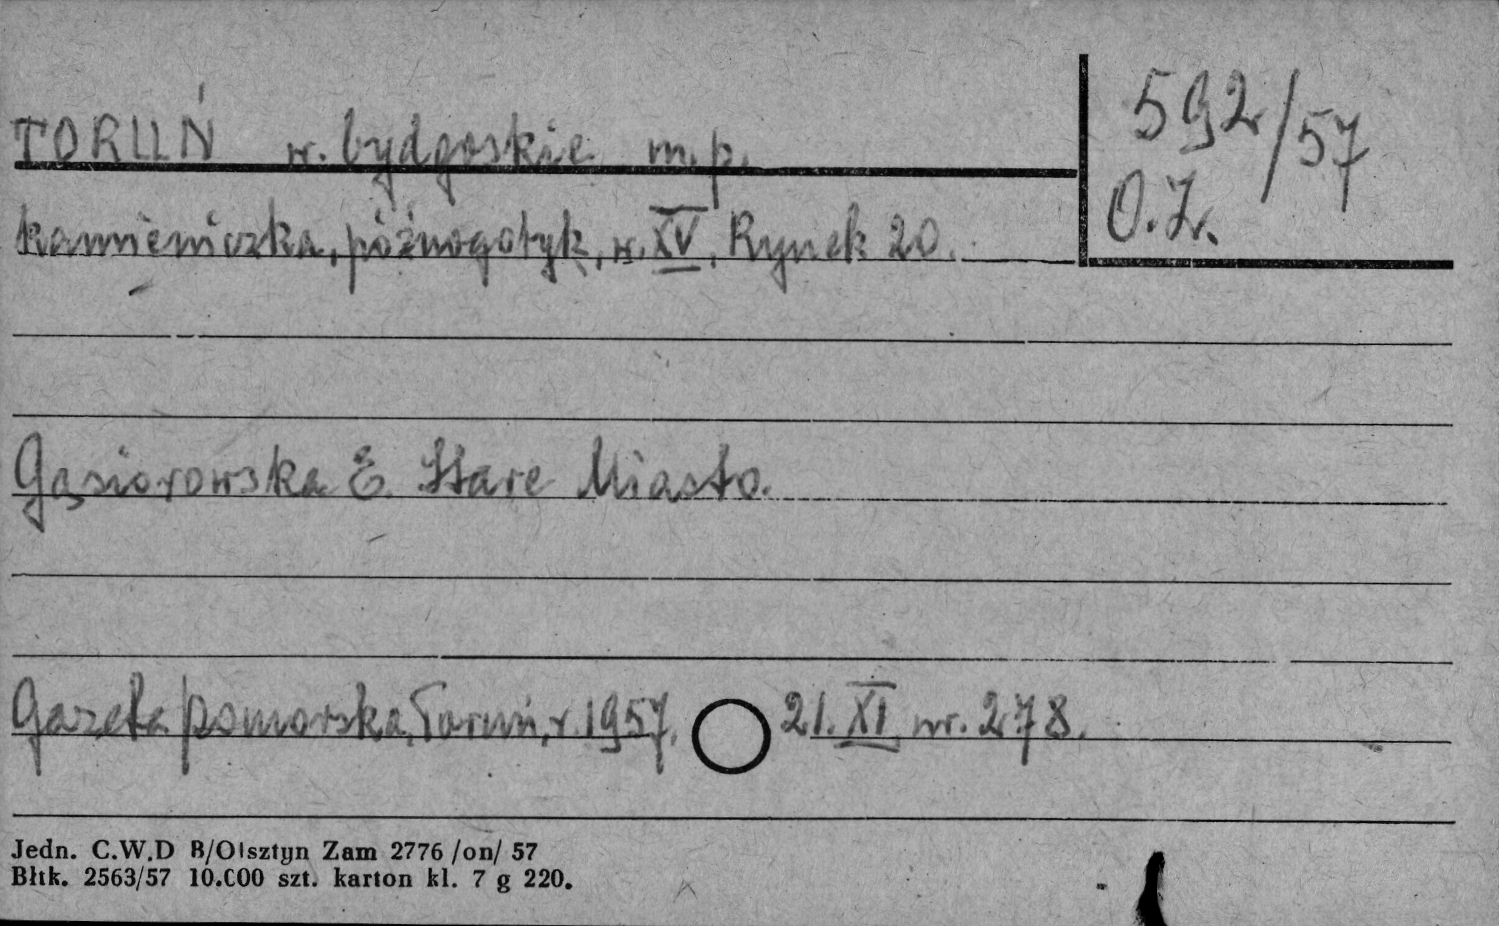 TORUŃ w. bydgoskie m.p.
592/57
O.Z.
kamieniczka, późnogotyk, w. XV, Rynek 20.
Gąsiorowska E. Stare Miasto.
Gazeta pomorska, Toruń, r. 1957, 21. XI nr. 278.
Jedn. C.W.D B/Olsztyn Zam 2776 /on/ 57
Błtk. 2563/57 10.000 szt. karton kl. 7 g 220.